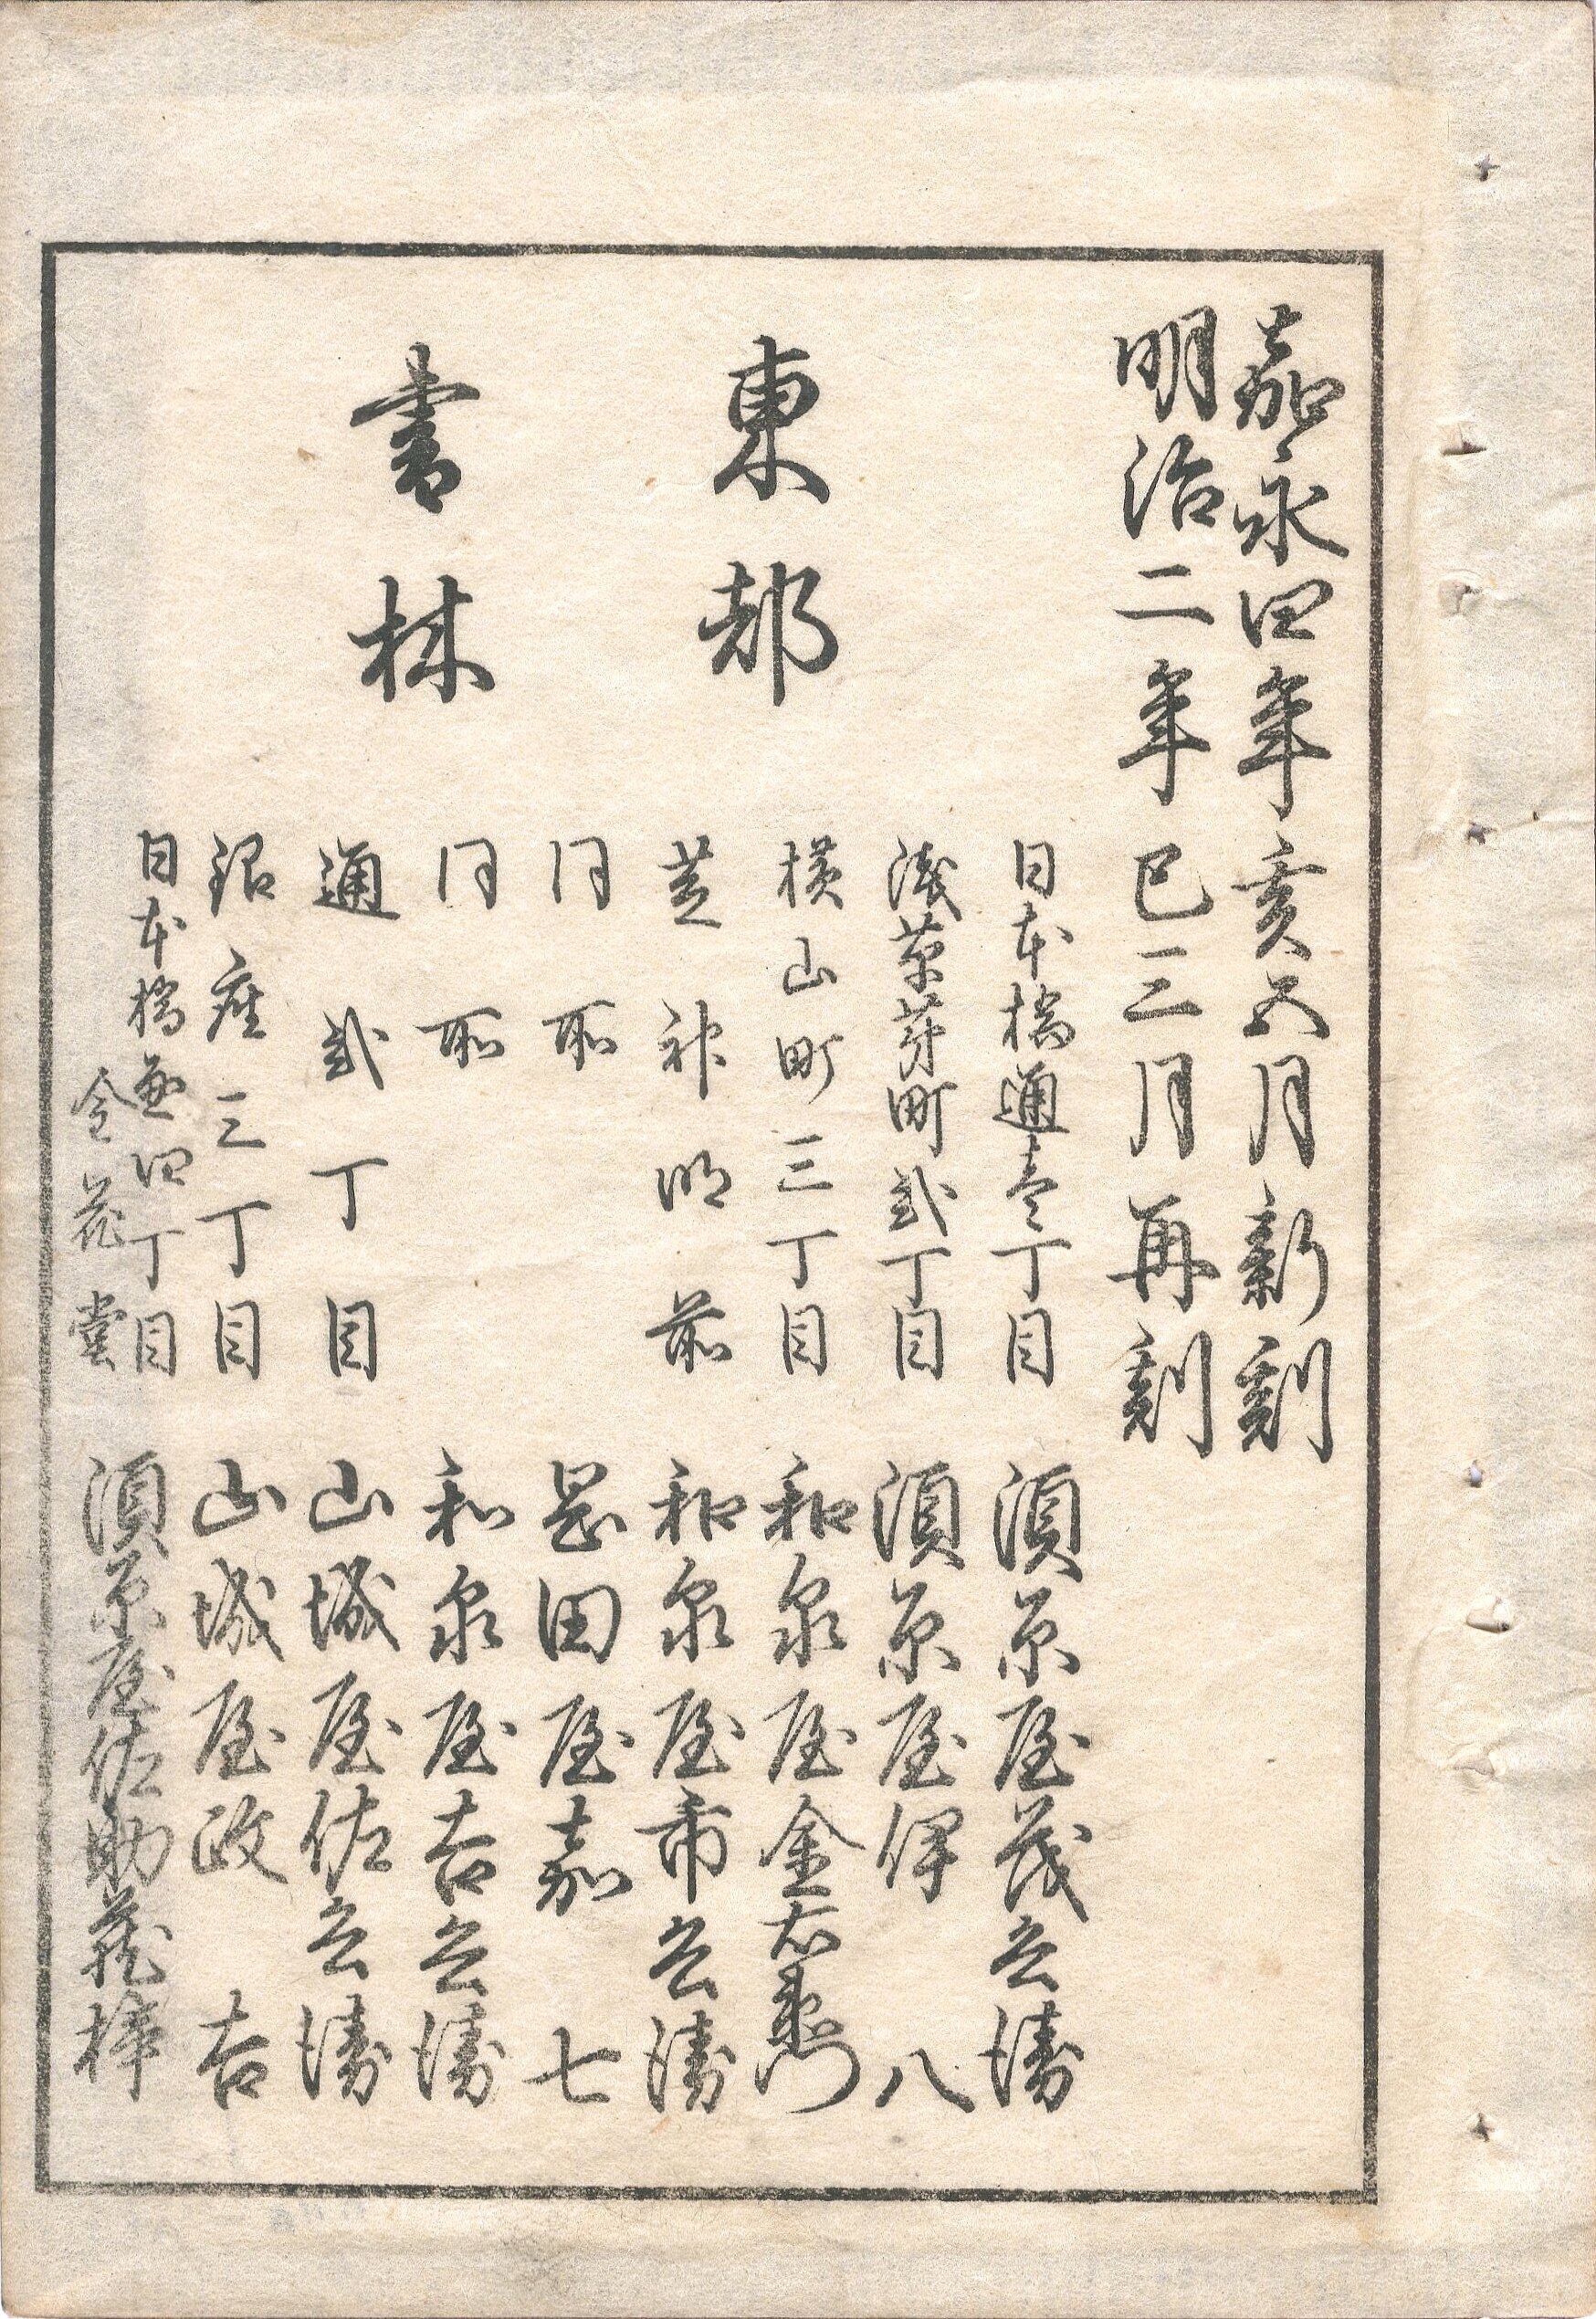 嘉永四年亥五月新刻
明治二年巳三月再刻
東都
書林
日本橋通壱丁目 須原屋茂兵衛
浅草茅町弐丁目 須原屋伊八
横山町三丁目 和泉屋金右衛門
芝神明前 和泉屋市兵衛
同所 岡田屋嘉七
同所 和泉屋吉兵衛
通弐丁目 山城屋佐兵衛
銀座三丁目 山城屋政吉
日本橋通四丁目
金花堂 須原屋佐助蔵梓